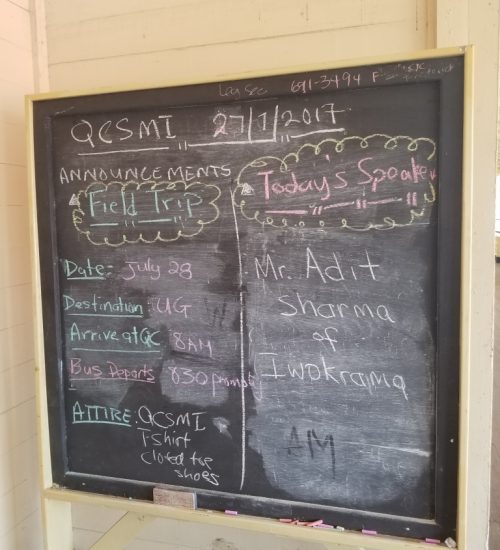 Leg Sec 691-3494 F
QCSMI 27/7/2017
ANNOUNCEMENTS
Field Trip
Date: July 28
Destination: UG
Arrive at QC 8AM
Bus Departs 830 promptly
ATTIRE: QCSMI
T-Shirt
closed toe
shoes
Today's Speaker
Mr. Adit
Sharma
of
Iwokrama
AM